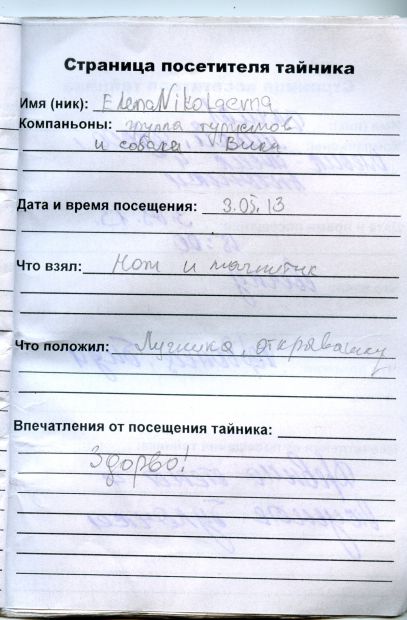 Страница посетителя тайника
Имя (ник): ElenaNikolaevna
Компаньоны: группа туристов
и собака Вики
Дата и время посещения: 3.05.13
Что взял: Нож и магнитик
Что положил: открывашку
Впечатления от посещения тайника:
Здорво!